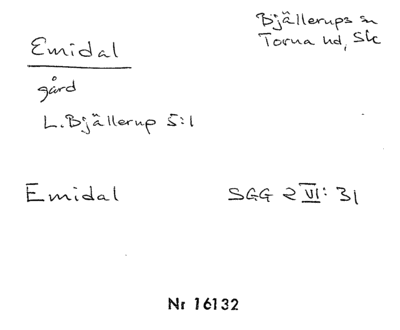 Emidal
Bjällerups sn
Torna hd, Sk
gård
L. Bjällerup 5:1
Emidal
SGG 2 VI: 31
Nr 16132